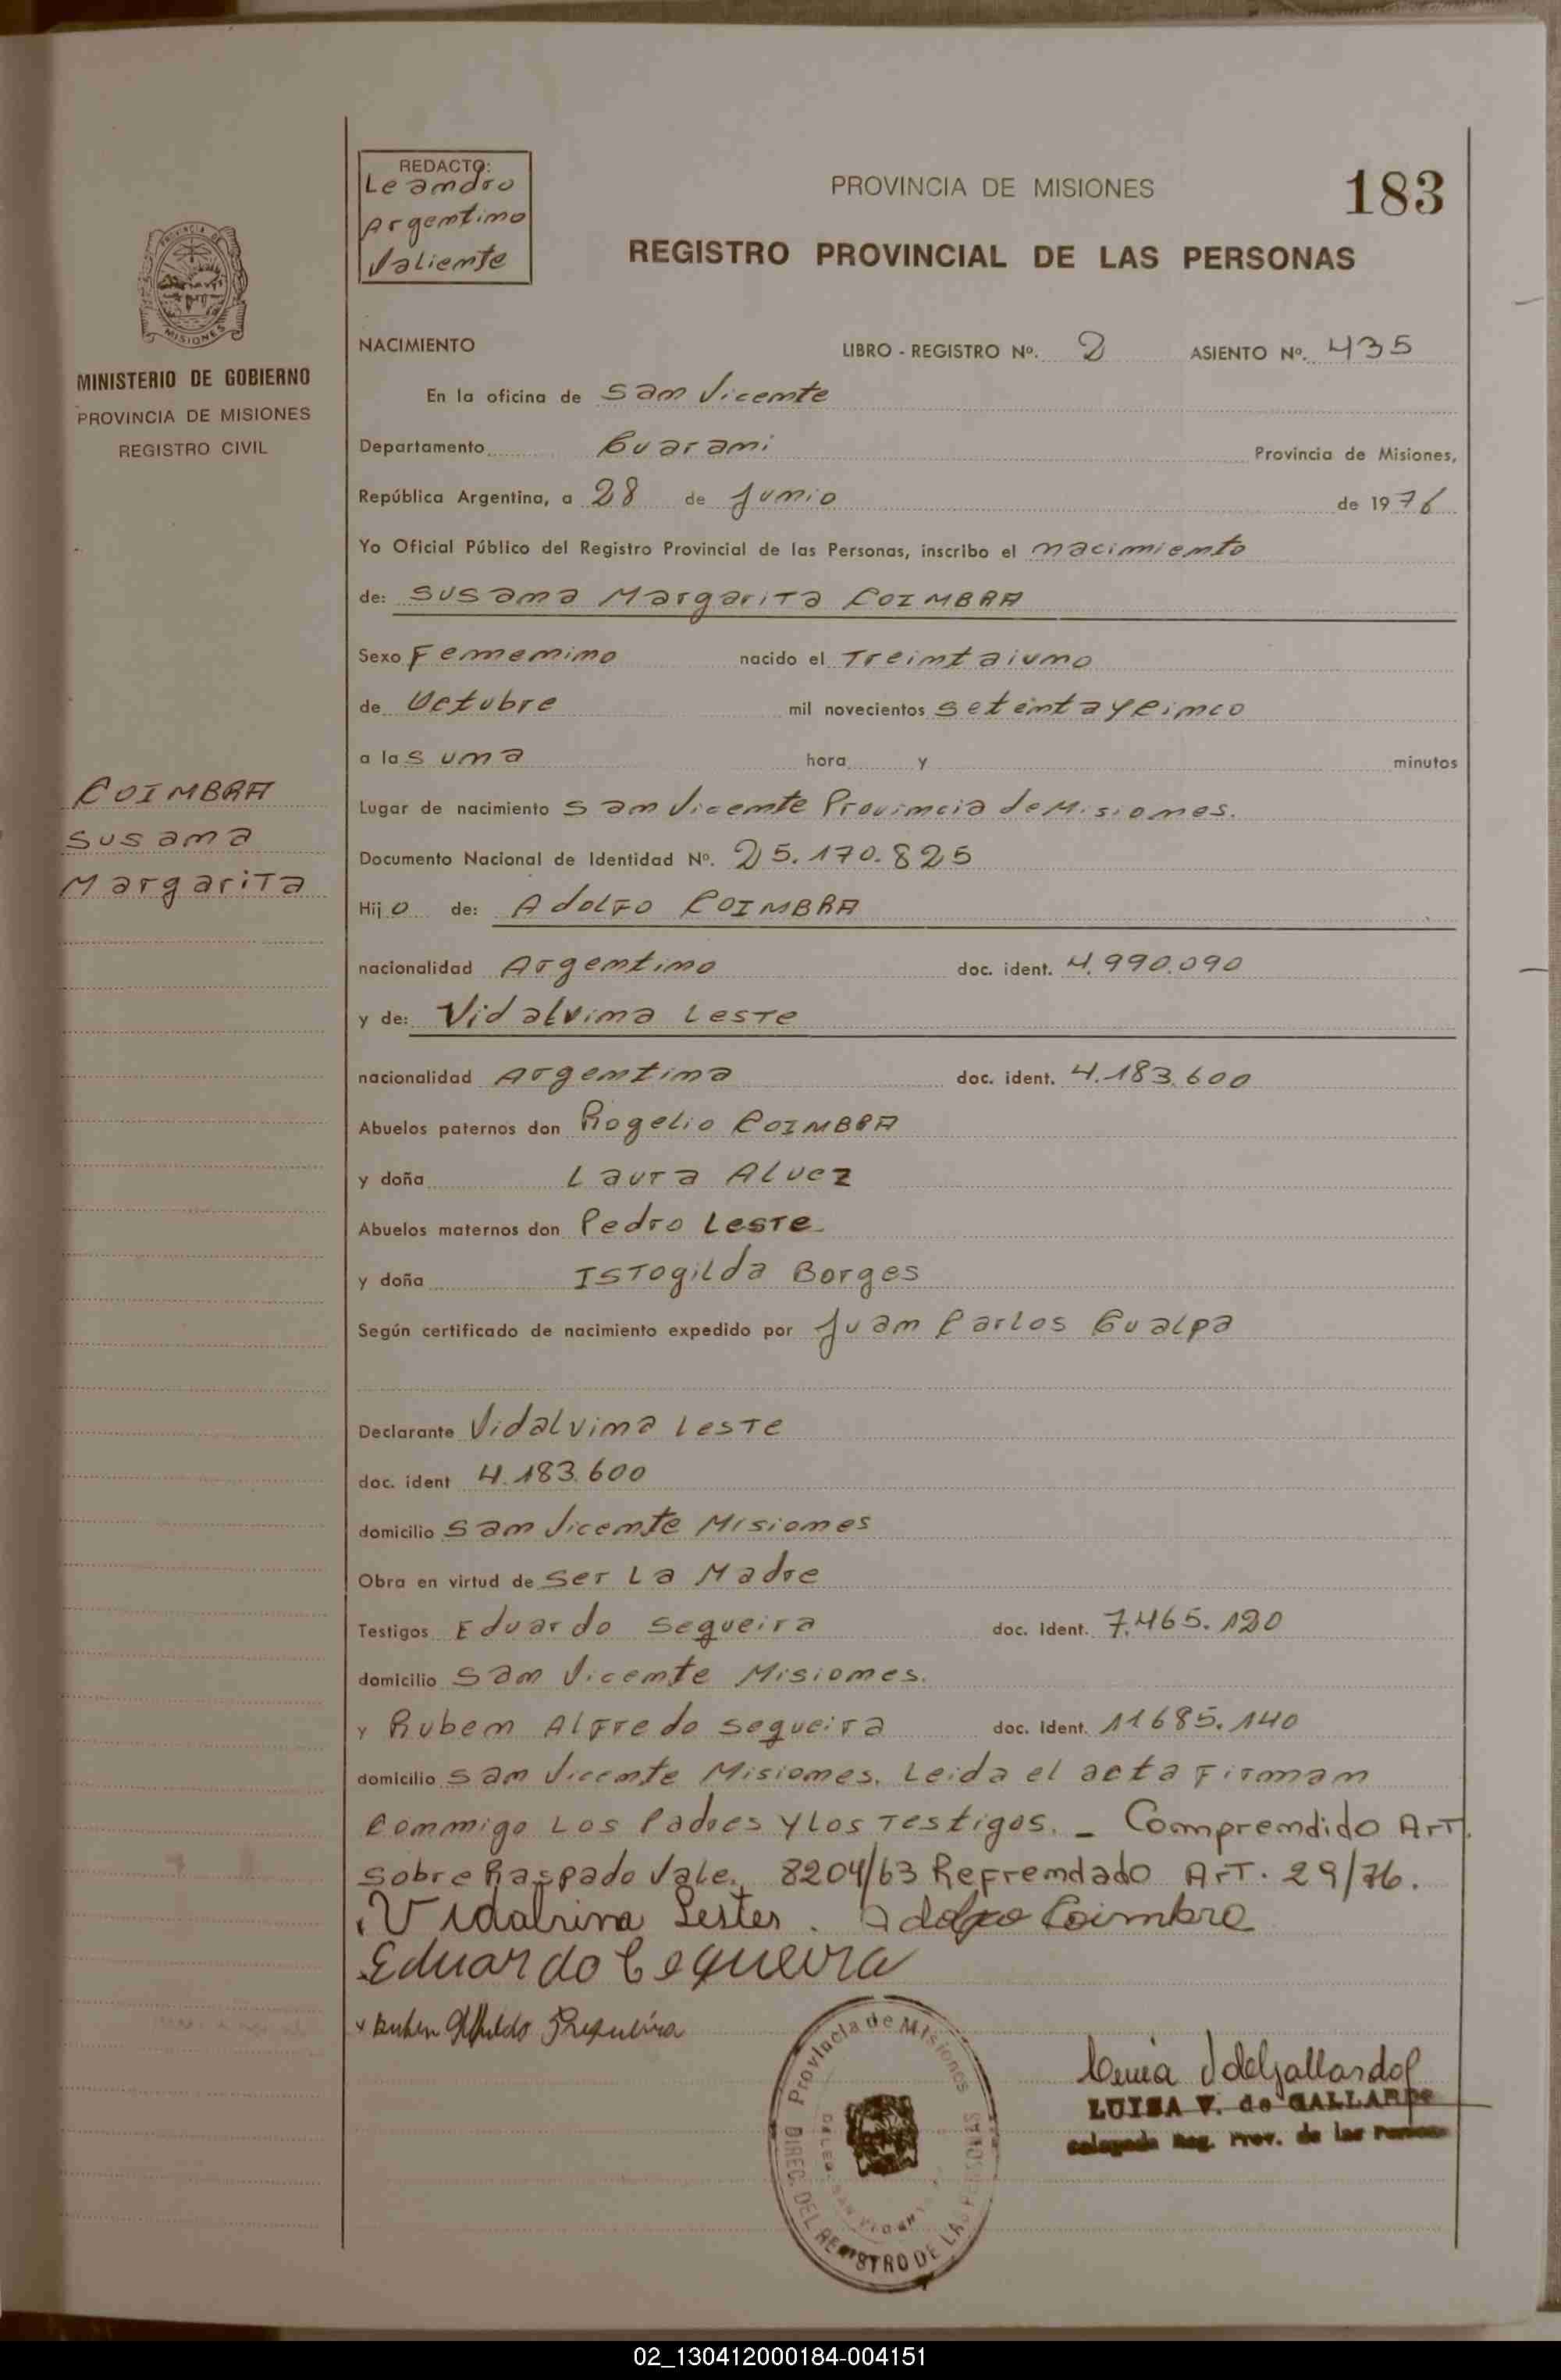 183
REDACTO:
Leandro
Argentino
Valiente
PROVINCIA DE MISIONES
REGISTRO PROVINCIAL DE LAS PERSONAS
PROVINCIA DE
MISIONES
MINISTERIO DE GOBIERNO
PROVINCIA DE MISIONES
REGISTRO CIVIL
COIMBRA
Susana
Margarita
NACIMIENTO LIBRO - REGISTRO Nº. 2 ASIENTO Nº. 435
En la oficina de San Vicente
Departamento Guarani Provincia de Misiones,
República Argentina, a 28 de Junio de 1976
Yo Oficial Público del Registro Provincial de las Personas, inscribo el nacimiento
de: Susana Margarita COIMBRA
Sexo Femenino nacido el Treintaiuno
de Octubre mil novecientos setentaycinco
a las una hora y minutos
Lugar de nacimiento San Vicente Provincia de Misiones.
Documento Nacional de Identidad Nº. 25.170.825
Hijo de: Adolfo COIMBRA
nacionalidad Argentino doc. ident. 4.990.090
y de: Vidalvina Leste
nacionalidad Argentina doc. ident. 4.183.600
Abuelos paternos don Rogelio COIMBRA
y doña Laura Alvez
Abuelos maternos don Pedro Leste
y doña Istogilda Borges
Según certificado de nacimiento expedido por Juan Carlos Gualpa
Declarante Vidalvina Leste
doc. ident 4.183.600
domicilio San Vicente Misiones
Obra en virtud de Ser La Madre
Testigos Eduardo Sequeira doc. Ident. 7.465.120
domicilio San Vicente Misiones.
y Ruben Alfredo Sequeira doc. Ident. 11685.140
domicilio San Vicente Misiones. Leida el acta Firman
Conmigo Los Padres y los Testigos. _ Comprendido Art.
Sobre Raspado Vale. 8204/63 Refrendado Art. 29/76.
Vidalvina Lestes. Adolfo Coimbra
Eduardo Cequeira
Provincia de Misiones
DIREC. DEL REGISTRO DE LAS PERSONAS
LUISA V. de GALLARDO
Delegada Reg. Prov. de las Personas
02_130412000184-004151